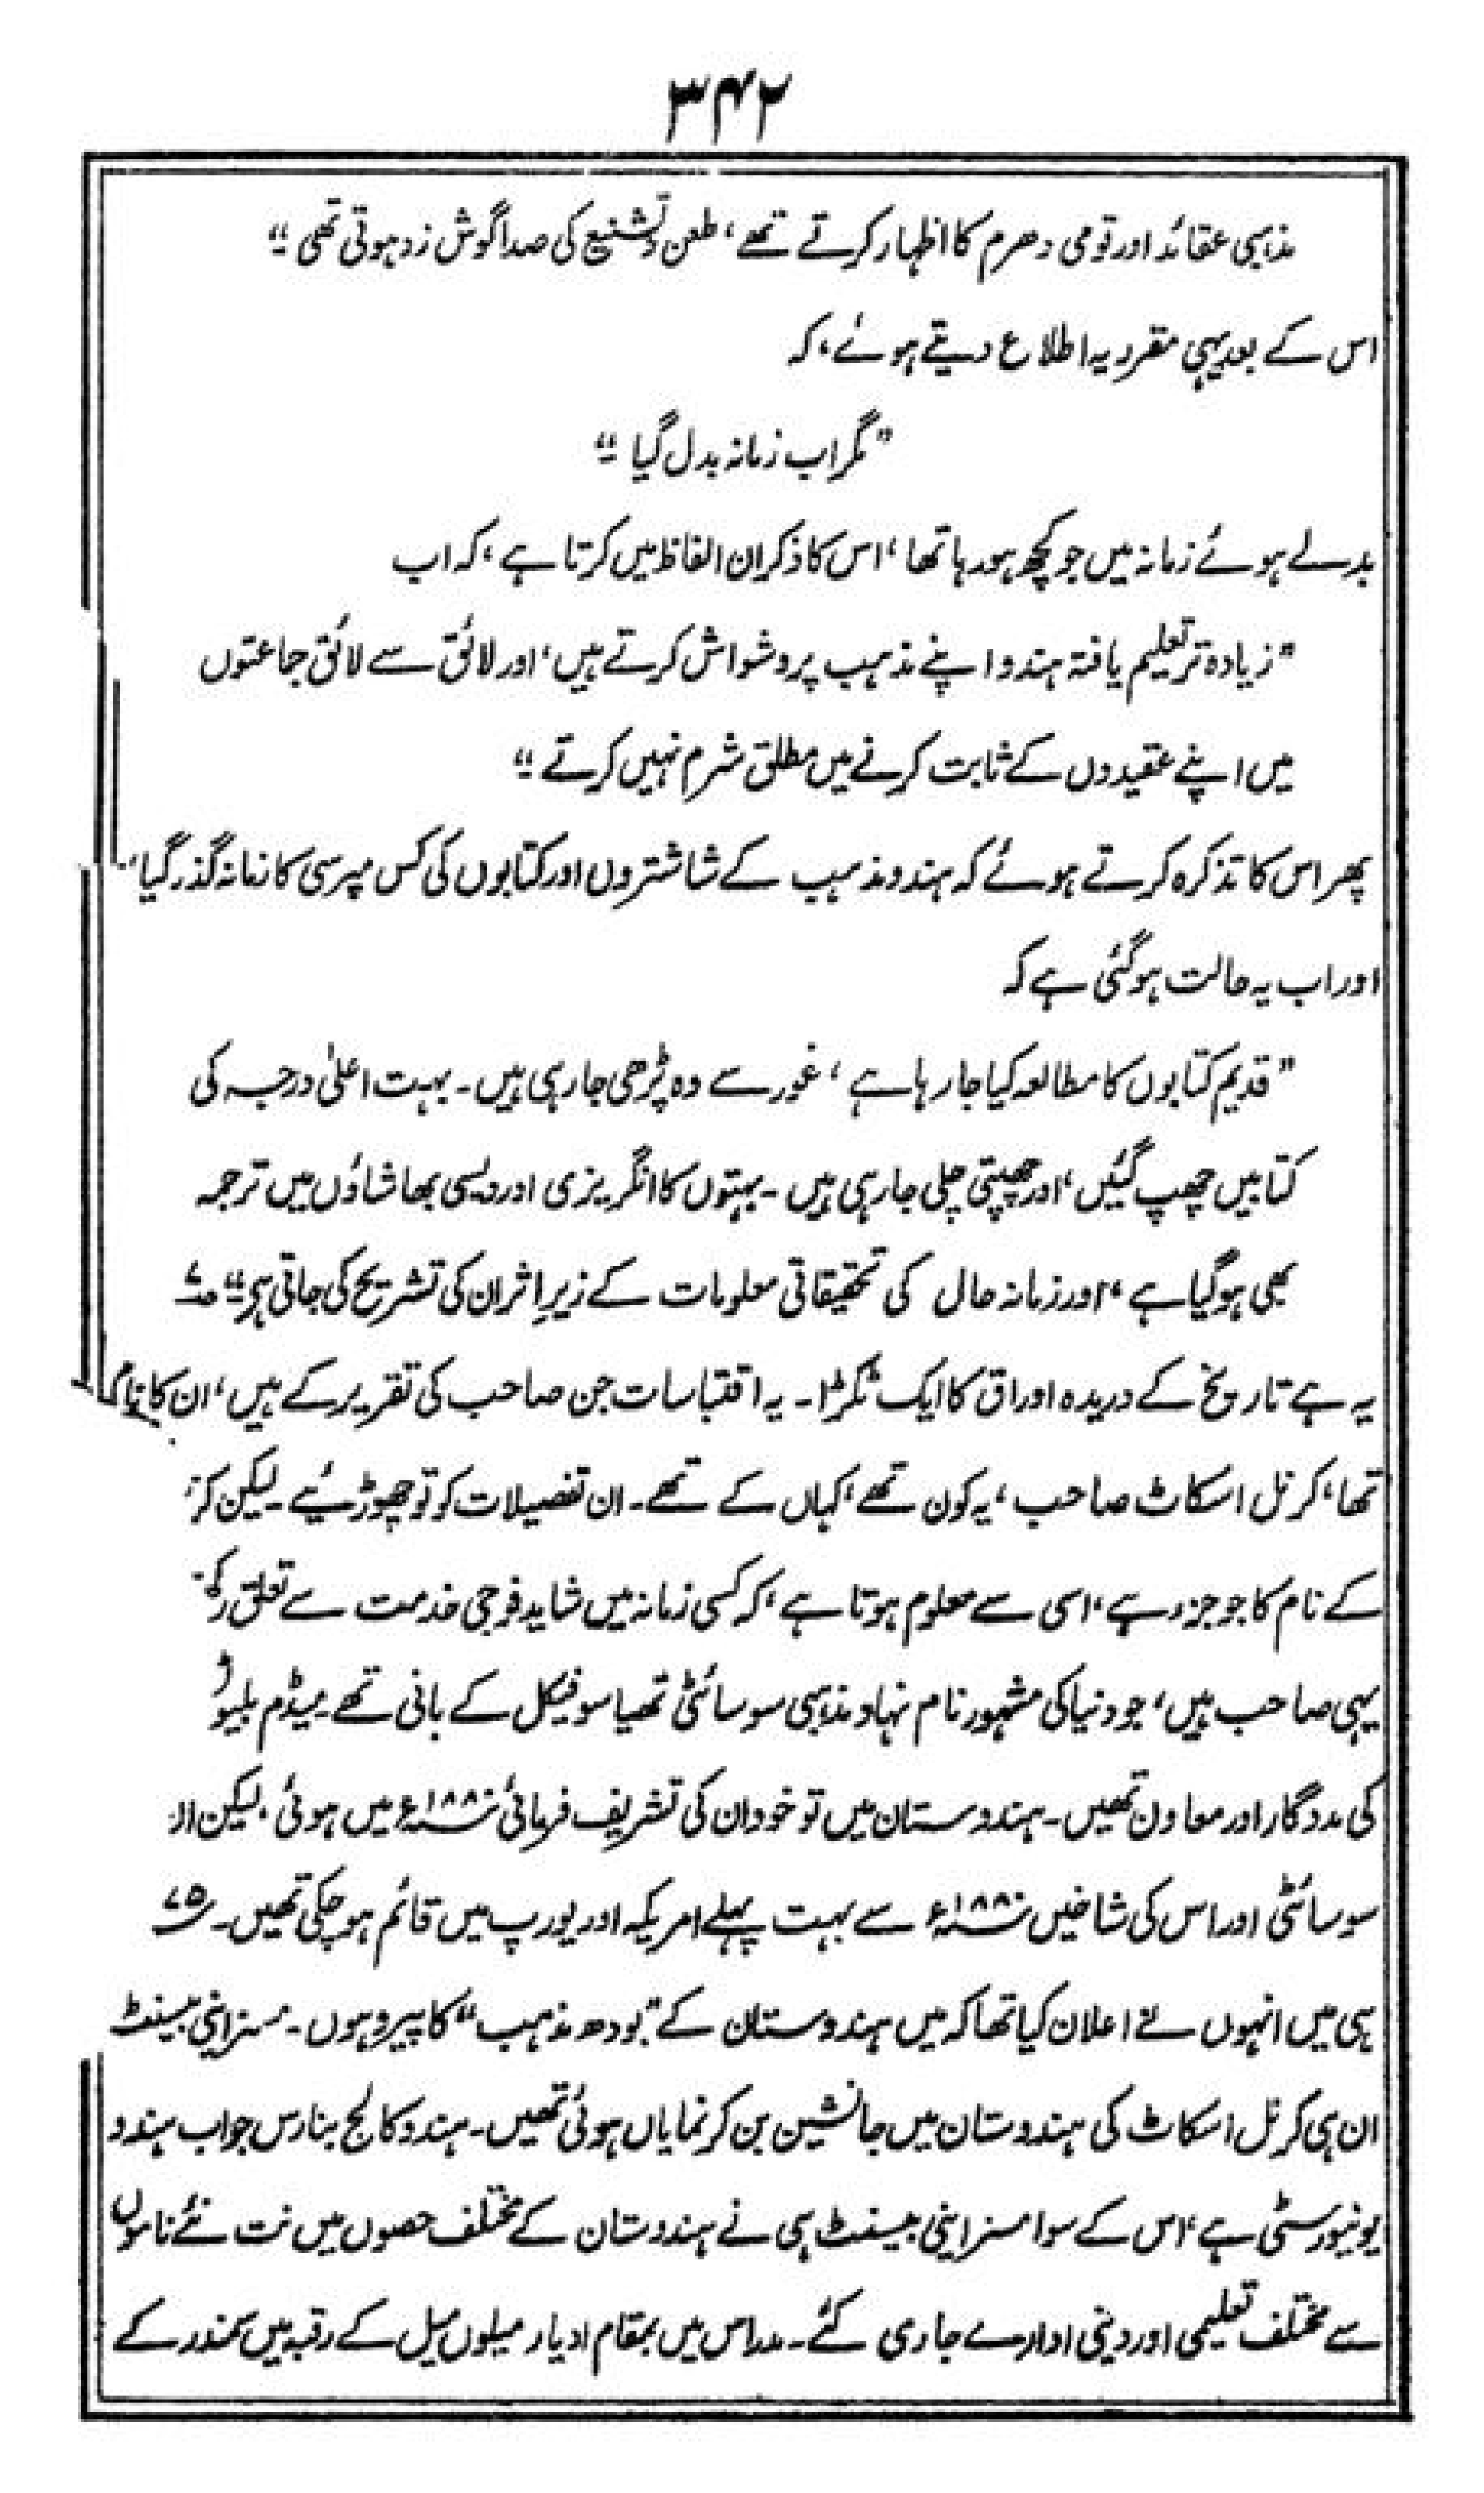 ۳۴۲
مذہبی عقائد اور قومی دھرم کا اظہار کرتے تھے، طعن و تشنیع کی صدا گوش زد ہوتی تھی ؛؛
اس کے بعد یہی مقرر یہ اطلاع دیتے ہوئے، کہ
"مگر اب زمانہ بدل گیا"
بدلے ہوئے زمانہ میں جو کچھ ہو رہا تھا، اس کا ذکر ان الفاظ میں کرتا ہے، کہ اب
"زیادہ تر تعلیم یافتہ ہندو اپنے مذہب پر وشواش کرتے ہیں، اور لائق سے لائق جماعتوں
میں اپنے عقیدوں کے ثابت کرنے میں مطلق شرم نہیں کرتے"
پھر اس کا تذکرہ کرتے ہوئے کہ ہندو مذہب کے شاشتروں اور کتابوں کی کس مپرسی کا زمانہ گذر گیا،
اور اب یہ حالت ہو گئی ہے کہ
"قدیم کتابوں کا مطالعہ کیا جا رہا ہے، غور سے وہ پڑھی جا رہی ہیں۔ بہت اعلیٰ درجہ کی
کتابیں چھپ گئیں، اور چھپتی چلی جا رہی ہیں۔ بہتوں کا انگریزی اور دیسی بھاشاؤں میں ترجمہ
بھی ہو گیا ہے، اور زمانہ حال کی تحقیقاتی معلومات کے زیرِ اثر ان کی تشریح کی جاتی ہے"
یہ ہے تاریخ کے دریدہ اوراق کا ایک ٹکڑا۔ یہ اقتباسات جن صاحب کی تقریر کے ہیں، ان کا نام
تھا، کرنل اسکاٹ صاحب، یہ کون تھے، کہاں کے تھے۔ ان تفصیلات کو تو چھوڑیئے۔ لیکن
کے نام کا جو جزء ہے، اسی سے معلوم ہوتا ہے، کہ کسی زمانہ میں شاید فوجی خدمت سے تعلق
یہی صاحب ہیں، جو دنیا کی مشہور نام نہاد مذہبی سوسائٹی تھیاسوفیکل کے بانی تھے۔ میڈم
کی مددگار اور معاون تھیں۔ ہندوستان میں تو خود ان کی تشریف فرمائی ۱۸۸۰ء میں ہوئی، لیکن
سوسائٹی اور اس کی شاخیں ۱۸۸۰ء سے بہت پہلے امریکہ اور یورپ میں قائم ہو چکی تھیں۔
ہی میں انہوں نے اعلان کیا تھا کہ میں ہندوستان کے "بودھ مذہب" کا پیرو ہوں۔ مسز اینی بیسنٹ
ان ہی کرنل اسکاٹ کی ہندوستان میں جانشین بن کر نمایاں ہوئی تھیں۔ ہندو کالج بنارس جو اب ہندو
یونیورسٹی ہے، اس کے سوا مسز اینی بیسنٹ ہی نے ہندوستان کے مختلف حصوں میں نت نئے ناموں
سے مختلف تعلیمی اور دینی ادارے جاری کئے۔ مدراس میں بمقام ادیار میلوں میل کے رقبہ میں سمندر کے